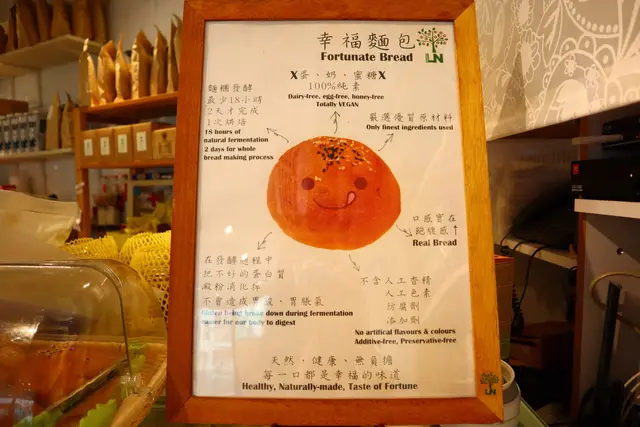 幸福麵包
Fortunate Bread
LN
X蛋、奶、蜜糖X
100%純素
Dairy-free, egg-free, honey-free
Totally VEGAN
麵糰發酵
最少18小時
2天才完成
1次烘焙
18 hours of
natural fermentation
2 days for whole
bread making process
嚴選優質原材料
Only finest ingredients used
口感實在
飽堍感↑
Real Bread
在發酵過程中
把不好的蛋白質
澱粉消化拆
不會造成胃酸、胃脹氣
Gluten being broke down during fermentation
easier for our body to digest
不含人工香精
人工色素
防腐劑
添加劑
No artificial flavours & colours
Additive-free, Preservative-free
天然、健康、無負擔
每一口都是幸福的味道
Healthy, Naturally-made, Taste of Fortune
LN